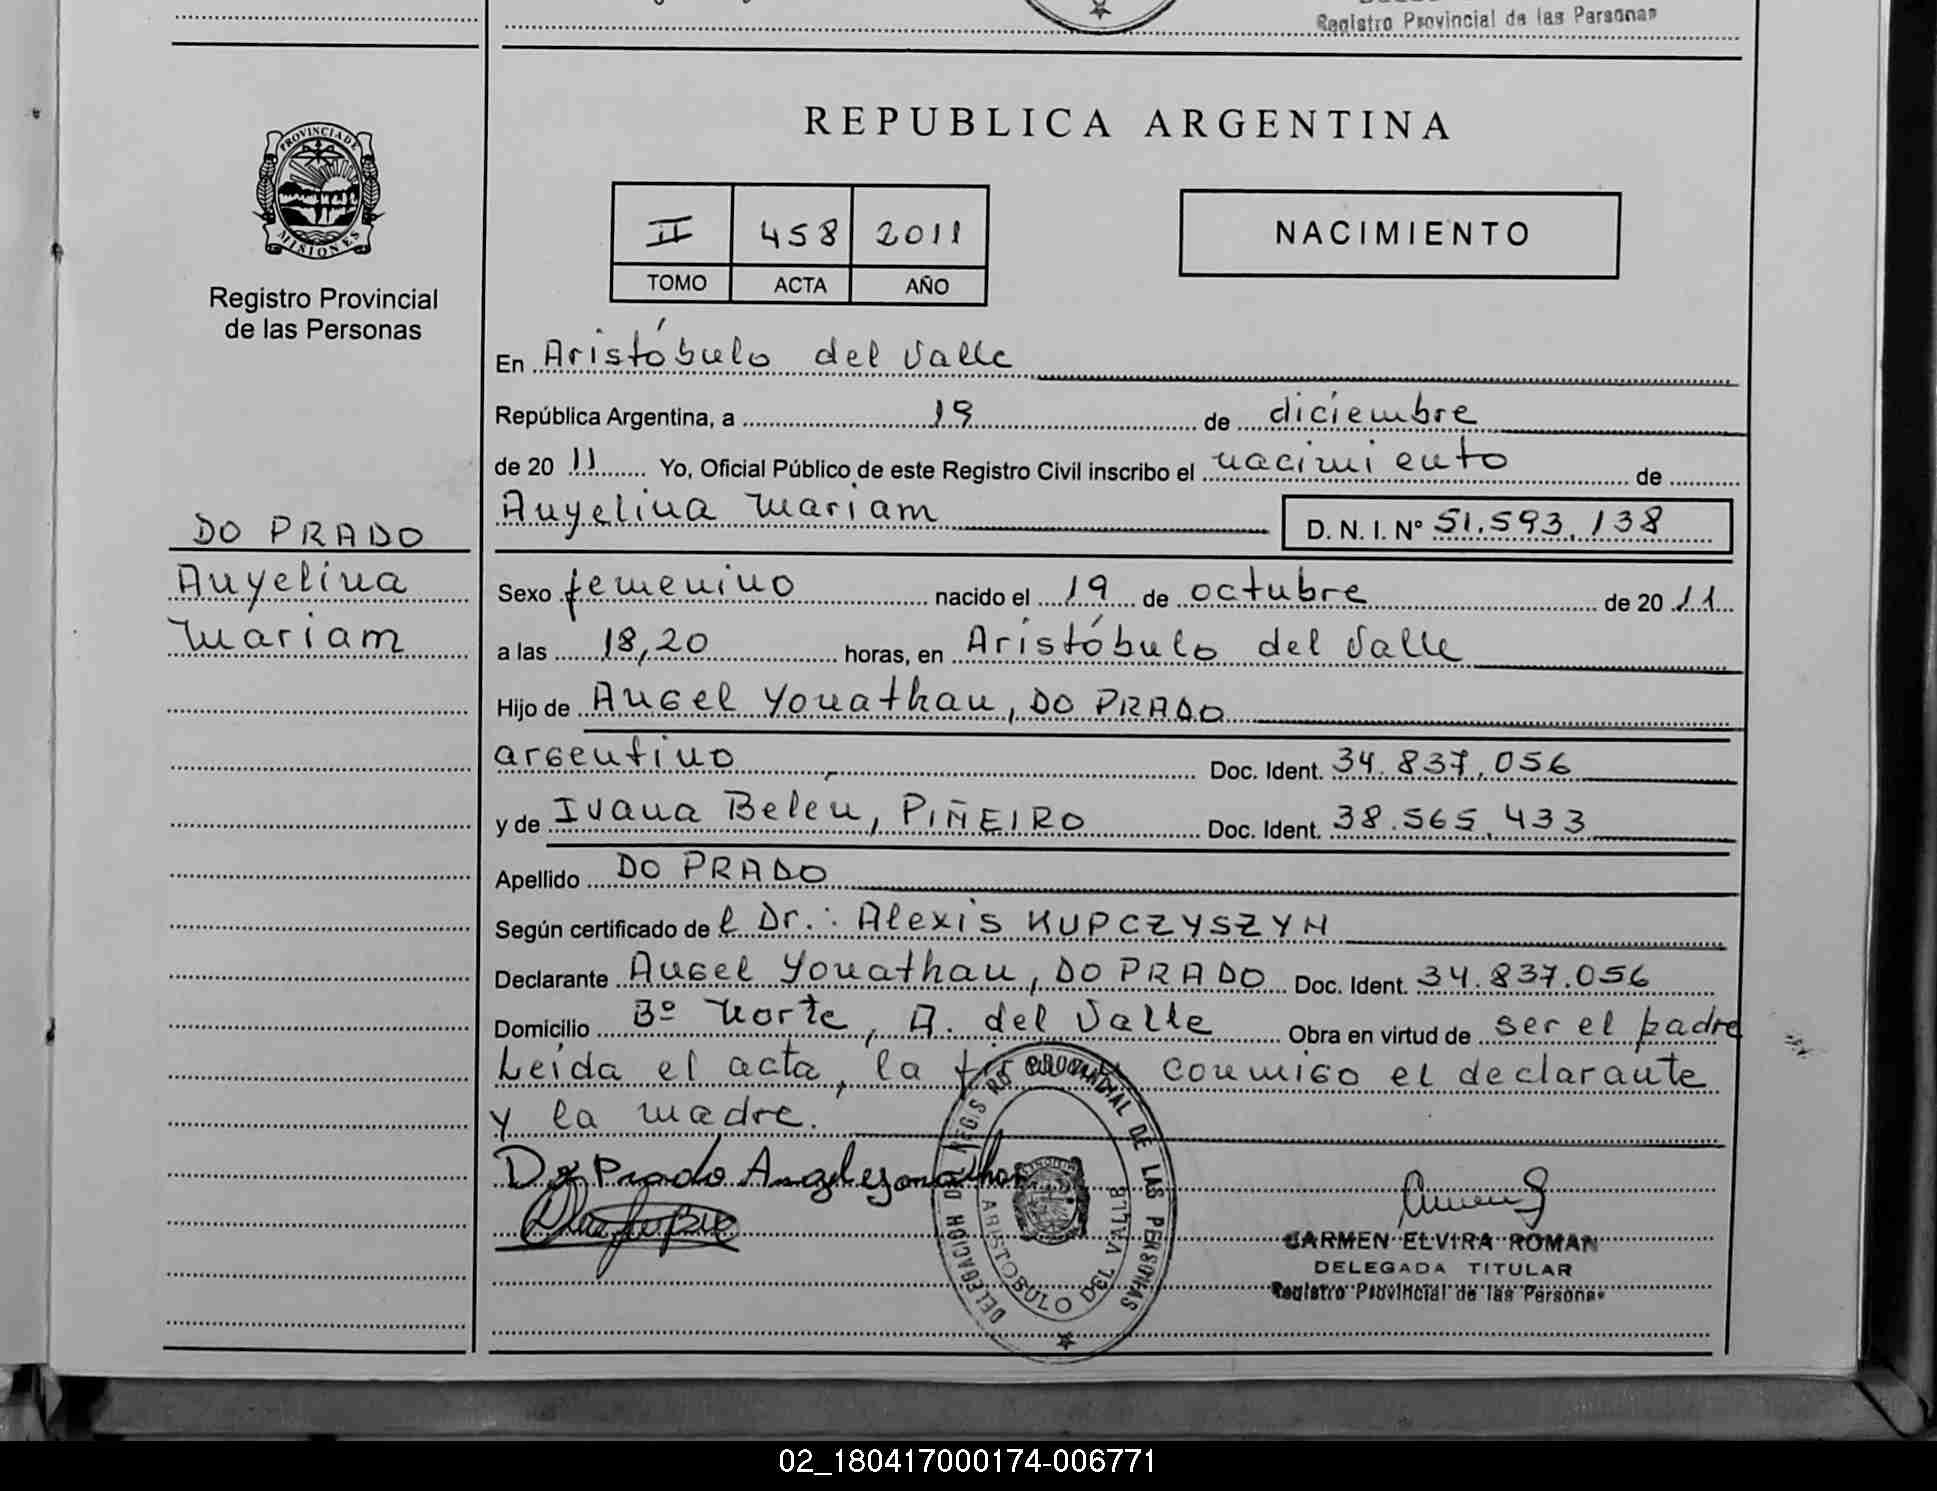 Registro Provincial de las Personas
PROVINCIA DE
MISIONES
Registro Provincial
de las Personas
DO PRADO
Anyelina
Mariam
REPUBLICA ARGENTINA
II 458 2011
TOMO ACTA AÑO
NACIMIENTO
En Aristóbulo del Valle
República Argentina, a 19 de diciembre
de 20 11 Yo, Oficial Público de este Registro Civil inscribo el nacimiento de
Anyelina Mariam D. N. I. Nº 51.593.138
Sexo femenino nacido el 19 de octubre de 20 11
a las 18,20 horas, en Aristóbulo del Valle
Hijo de Angel Yonathan, DO PRADO
argentino Doc. Ident. 34.837.056
y de Ivana Belen, PIÑEIRO Doc. Ident. 38.565.433
Apellido DO PRADO
Según certificado de l Dr.: Alexis KUPCZYSZYN
Declarante Angel Yonathan, DO PRADO Doc. Ident. 34.837.056
Domicilio Bº Norte, A. del Valle Obra en virtud de ser el padre
Leída el acta, la conmigo el declarante
y la madre.
Do Prado Angel
DELEGACION REGISTRO PROVINCIAL DE LAS PERSONAS
ARISTOBULO DEL VALLE
CARMEN ELVIRA ROMAN
DELEGADA TITULAR
Registro Provincial de las Personas
02_180417000174-006771